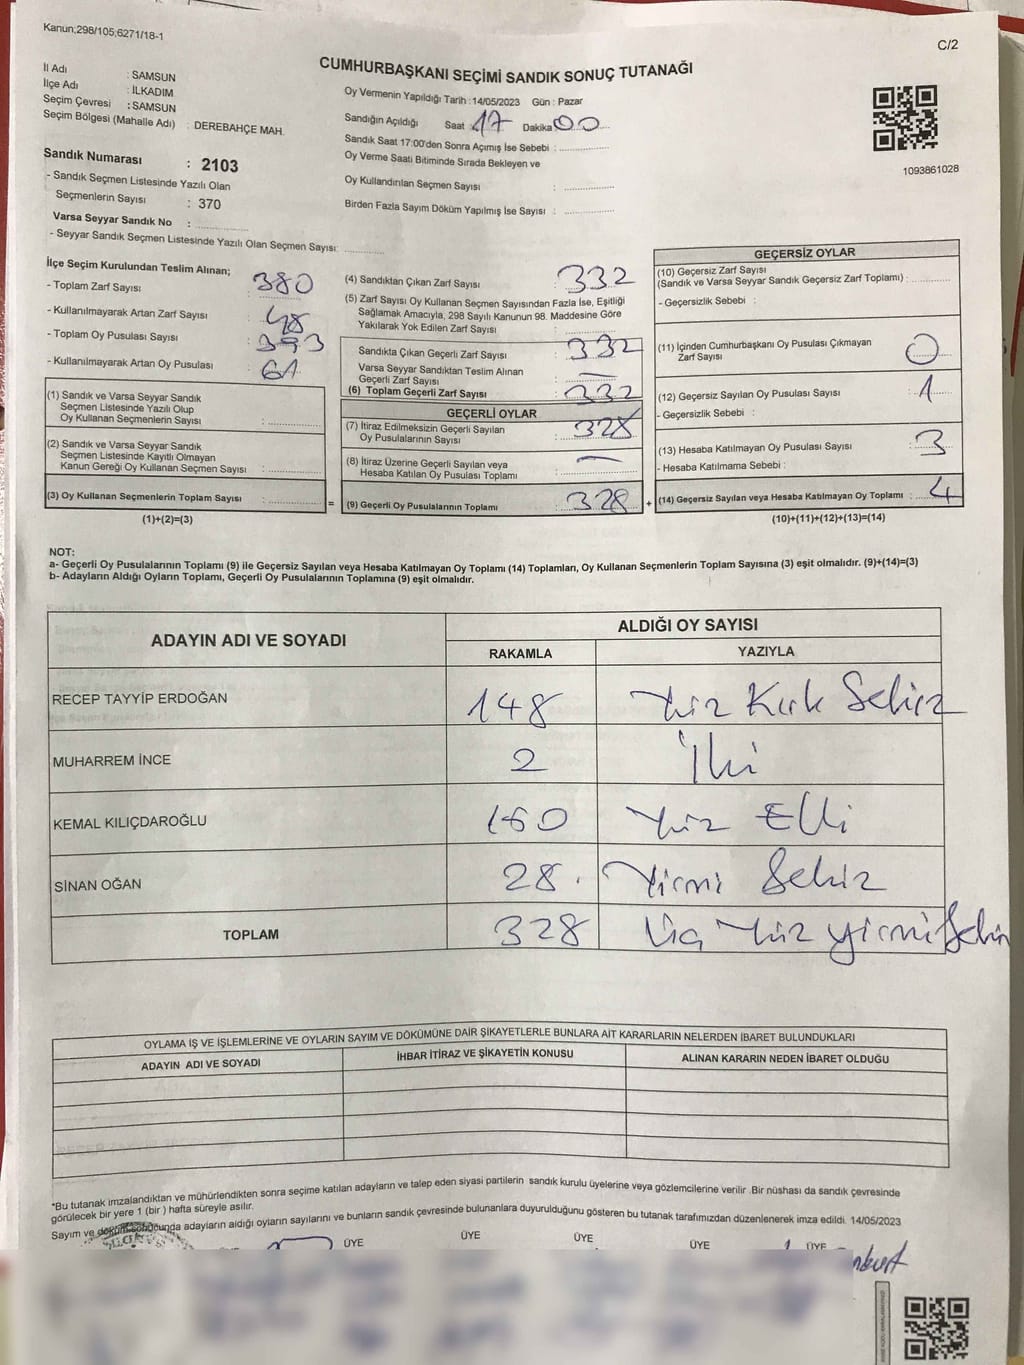 Kanun;298/105;6271/18-1
C/2
CUMHURBAŞKANI SEÇİMİ SANDIK SONUÇ TUTANAĞI
İl Adı : SAMSUN
İlçe Adı : İLKADIM
Seçim Çevresi : SAMSUN
Seçim Bölgesi (Mahalle Adı) : DEREBAHÇE MAH.
Sandık Numarası : 2103
- Sandık Seçmen Listesinde Yazılı Olan
Seçmenlerin Sayısı : 370
Varsa Seyyar Sandık No :
- Seyyar Sandık Seçmen Listesinde Yazılı Olan Seçmen Sayısı:
Oy Vermenin Yapıldığı Tarih : 14/05/2023 Gün : Pazar
Sandığın Açıldığı Saat 17 Dakika 00
Sandık Saat 17:00'den Sonra Açımış İse Sebebi :
Oy Verme Saati Bitiminde Sırada Bekleyen ve
Oy Kullandırılan Seçmen Sayısı :
Birden Fazla Sayım Döküm Yapılmış İse Sayısı :
1093861028
İlçe Seçim Kurulundan Teslim Alınan;
- Toplam Zarf Sayısı : 380
- Kullanılmayarak Artan Zarf Sayısı : 48
- Toplam Oy Pusulası Sayısı : 393
- Kullanılmayarak Artan Oy Pusulası : 61
(1) Sandık ve Varsa Seyyar Sandık
Seçmen Listesinde Yazılı Olup
Oy Kullanan Seçmenlerin Sayısı :
(2) Sandık ve Varsa Seyyar Sandık
Seçmen Listesinde Kayıtlı Olmayan
Kanun Gereği Oy Kullanan Seçmen Sayısı :
(3) Oy Kullanan Seçmenlerin Toplam Sayısı : =
(1)+(2)=(3)
(4) Sandıktan Çıkan Zarf Sayısı : 332
(5) Zarf Sayısı Oy Kullanan Seçmen Sayısından Fazla İse, Eşitliği
Sağlamak Amacıyla, 298 Sayılı Kanunun 98. Maddesine Göre
Yakılarak Yok Edilen Zarf Sayısı :
Sandıkta Çıkan Geçerli Zarf Sayısı : 332
Varsa Seyyar Sandıktan Teslim Alınan
Geçerli Zarf Sayısı : —
(6) Toplam Geçerli Zarf Sayısı : 332
GEÇERLİ OYLAR
(7) İtiraz Edilmeksizin Geçerli Sayılan
Oy Pusulalarının Sayısı : 328
(8) İtiraz Üzerine Geçerli Sayılan veya
Hesaba Katılan Oy Pusulası Toplamı : —
(9) Geçerli Oy Pusulalarının Toplamı : 328 +
GEÇERSİZ OYLAR
(10) Geçersiz Zarf Sayısı
(Sandık ve Varsa Seyyar Sandık Geçersiz Zarf Toplamı) :
- Geçersizlik Sebebi :
(11) İçinden Cumhurbaşkanı Oy Pusulası Çıkmayan
Zarf Sayısı : 0
(12) Geçersiz Sayılan Oy Pusulası Sayısı : 1
- Geçersizlik Sebebi :
(13) Hesaba Katılmayan Oy Pusulası Sayısı : 3
- Hesaba Katılmama Sebebi :
(14) Geçersiz Sayılan veya Hesaba Katılmayan Oy Toplamı : 4
(10)+(11)+(12)+(13)=(14)
NOT:
a- Geçerli Oy Pusulalarının Toplamı (9) ile Geçersiz Sayılan veya Hesaba Katılmayan Oy Toplamı (14) Toplamları, Oy Kullanan Seçmenlerin Toplam Sayısına (3) eşit olmalıdır. (9)+(14)=(3)
b- Adayların Aldığı Oyların Toplamı, Geçerli Oy Pusulalarının Toplamına (9) eşit olmalıdır.
ADAYIN ADI VE SOYADI
ALDIĞI OY SAYISI
RAKAMLA YAZIYLA
RECEP TAYYİP ERDOĞAN 148 Yüz Kırk Sekiz
MUHARREM İNCE 2 İki
KEMAL KILIÇDAROĞLU 150 Yüz Elli
SİNAN OĞAN 28. Yirmi Sekiz
TOPLAM 328 Üç Yüz yirmi Sekiz
OYLAMA İŞ VE İŞLEMLERİNE VE OYLARIN SAYIM VE DÖKÜMÜNE DAİR ŞİKAYETLERLE BUNLARA AİT KARARLARIN NELERDEN İBARET BULUNDUKLARI
ADAYIN ADI VE SOYADI İHBAR İTİRAZ VE ŞİKAYETİN KONUSU ALINAN KARARIN NEDEN İBARET OLDUĞU
*Bu tutanak imzalandıktan ve mühürlendikten sonra seçime katılan adayların ve talep eden siyasi partilerin sandık kurulu üyelerine veya gözlemcilerine verilir .Bir nüshası da sandık çevresinde
görülecek bir yere 1 (bir ) hafta süreyle asılır.
Sayım ve döküm sonucunda adayların aldığı oyların sayılarını ve bunların sandık çevresinde bulunanlara duyurulduğunu gösteren bu tutanak tarafımızdan düzenlenerek imza edildi. 14/05/2023
ÜYE ÜYE ÜYE ÜYE ÜYE